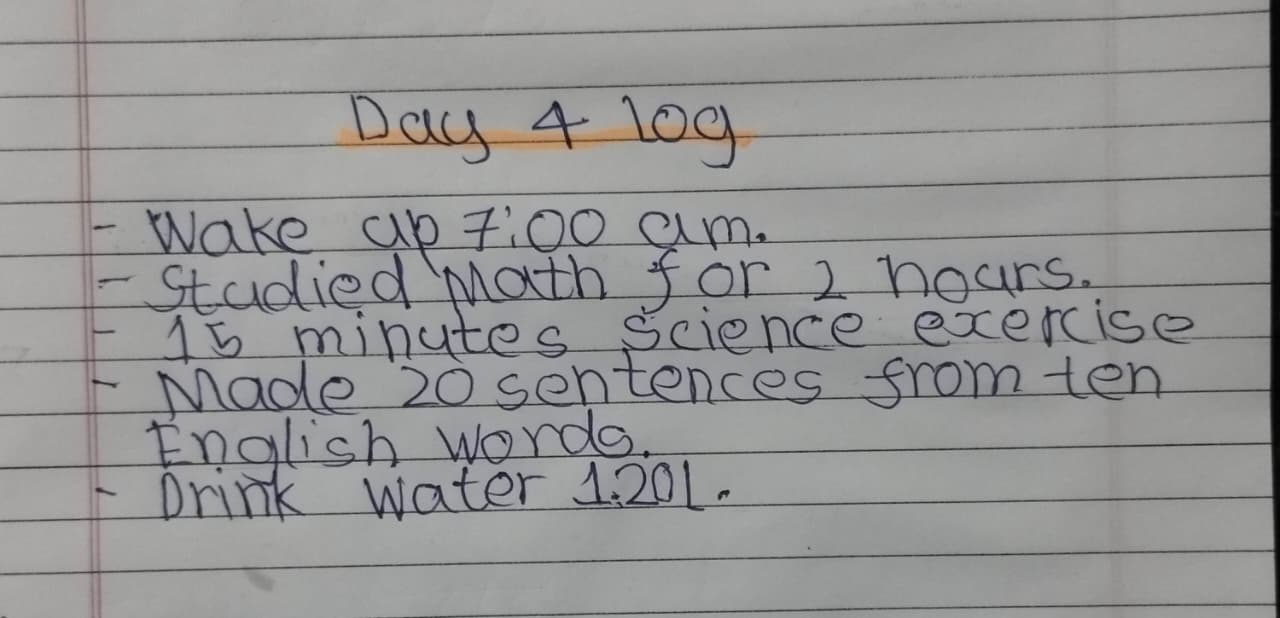 Day 4 log
- Wake up 7:00 am.
- Studied Math for 2 hours.
- 15 minutes science exercise
- Made 20 sentences from ten
English words.
- Drink water 1.20L.